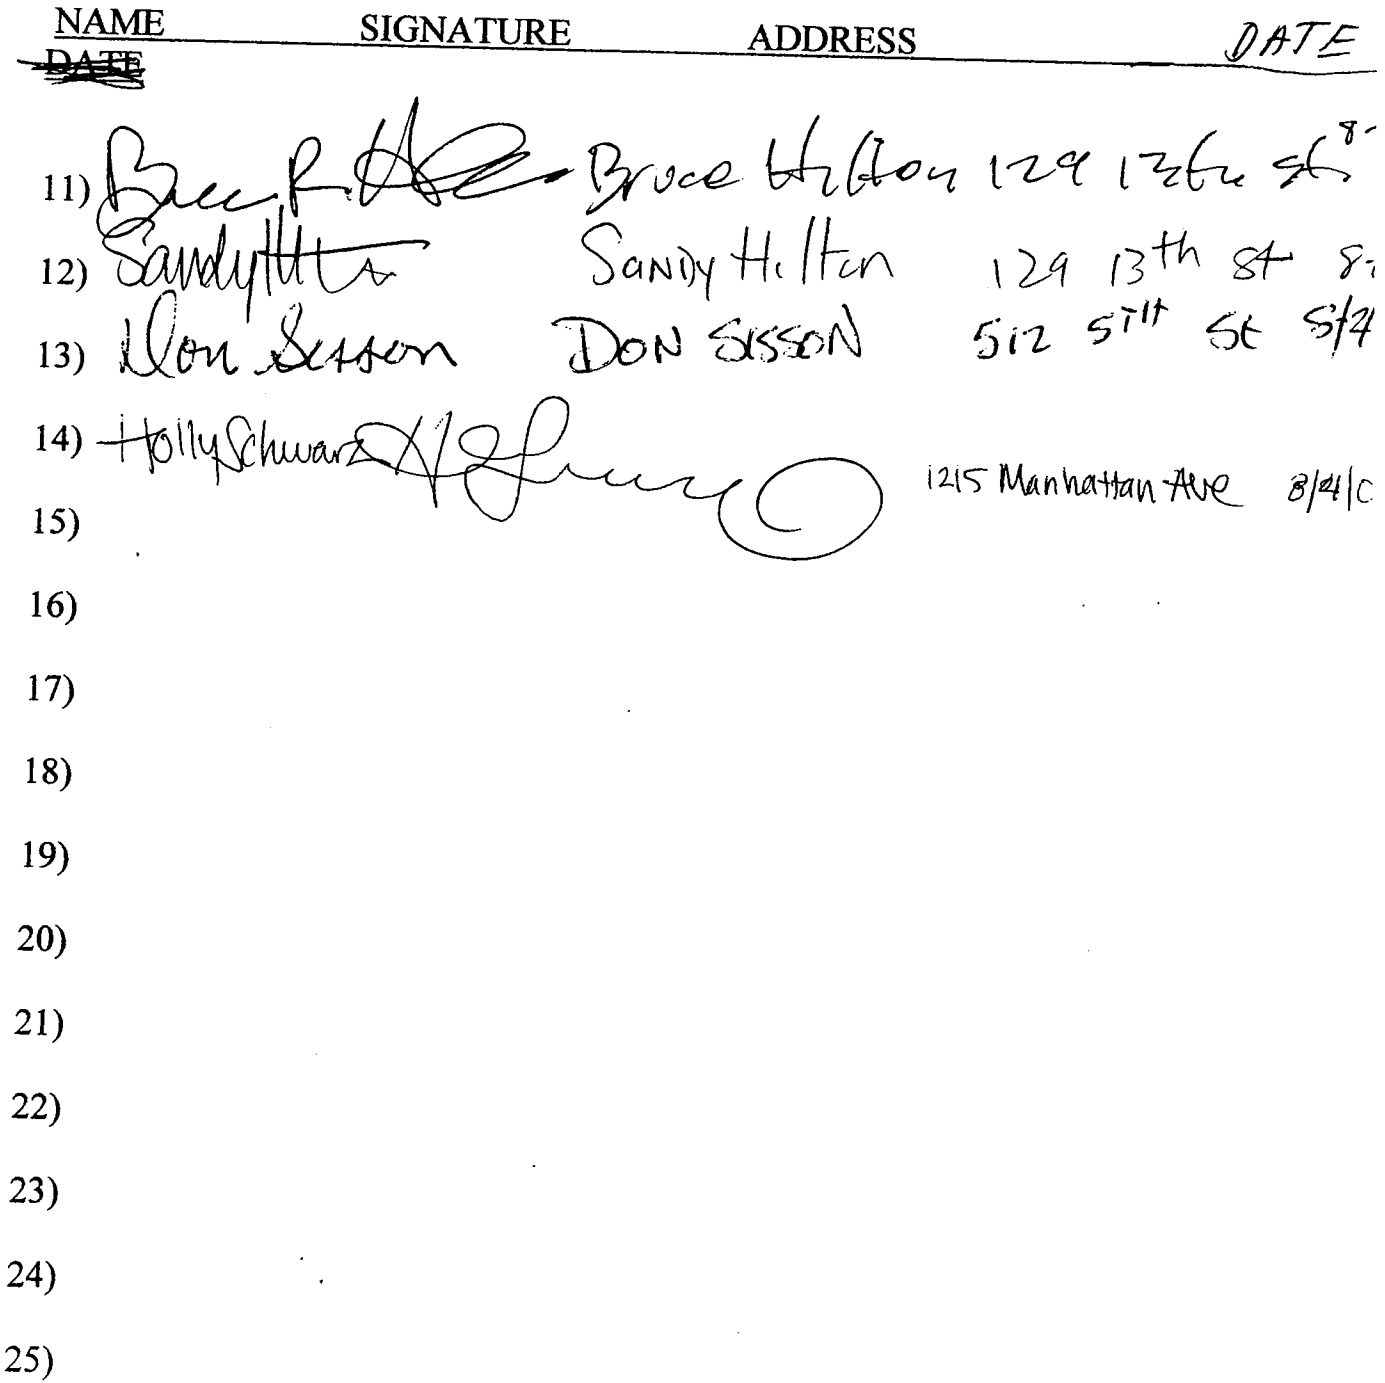 NAME SIGNATURE ADDRESS DATE
DATE
11) Bruce Hilton 129 13th St 8-
12) Sandy Hilton SANDY Hilton 129 13th St 8-
13) Don Sisson DON SISSON 512 5TH St 8/4
14) Holly Schwarz 1215 Manhattan Ave 8/4/0
15)
16)
17)
18)
19)
20)
21)
22)
23)
24)
25)